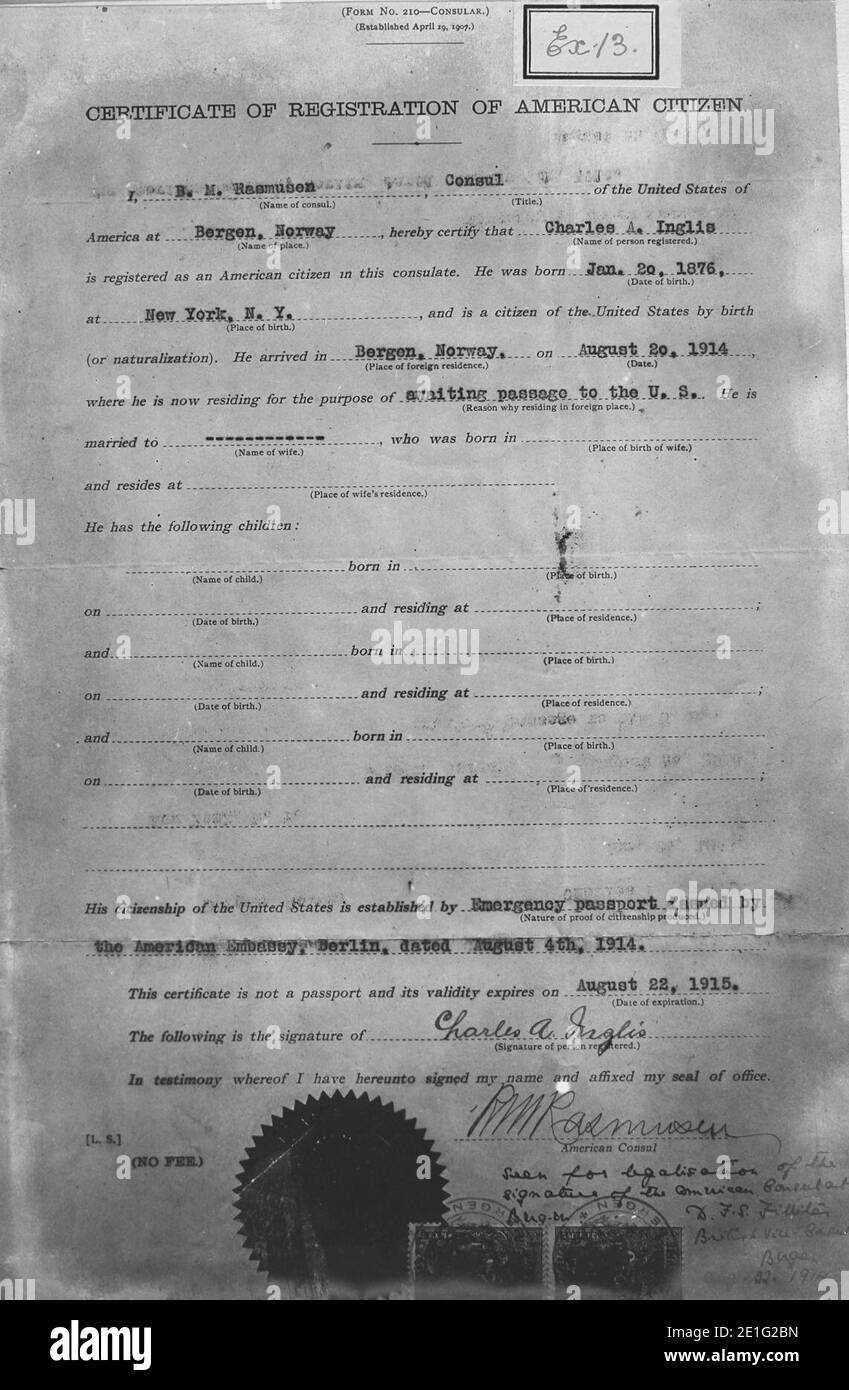 (Form No. 210—Consular.)
(Established April 19, 1907.)
Ex. 13.
CERTIFICATE OF REGISTRATION OF AMERICAN CITIZEN
I, B. M. Rasmusen, Consul of the United States of
(Name of consul.) (Title.)
America at Bergen, Norway, hereby certify that Charles A. Inglis
(Name of place.) (Name of person registered.)
is registered as an American citizen in this consulate. He was born Jan. 20, 1876,
(Date of birth.)
at New York, N. Y., and is a citizen of the United States by birth
(Place of birth.)
(or naturalization). He arrived in Bergen, Norway, on August 20, 1914,
(Place of foreign residence.) (Date.)
where he is now residing for the purpose of awaiting passage to the U. S. He is
(Reason why residing in foreign place.)
married to ------------, who was born in
(Name of wife.) (Place of birth of wife.)
and resides at
(Place of wife's residence.)
He has the following children:
born in
(Name of child.) (Place of birth.)
on and residing at ;
(Date of birth.) (Place of residence.)
and born in
(Name of child.) (Place of birth.)
on and residing at ;
(Date of birth.) (Place of residence.)
and born in
(Name of child.) (Place of birth.)
on and residing at ;
(Date of birth.) (Place of residence.)
His citizenship of the United States is established by Emergency passport issued by
(Nature of proof of citizenship produced.)
the American Embassy, Berlin, dated August 4th, 1914.
This certificate is not a passport and its validity expires on August 22, 1915.
(Date of expiration.)
The following is the signature of Charles A. Inglis
(Signature of person registered.)
In testimony whereof I have hereunto signed my name and affixed my seal of office.
BM Rasmusen
[L. S.]
American Consul
(NO FEE.)
Seen for legalisation of the
signature of the American Consulate
Bergen
British Vice Consul
Bergen
22. 1914
BERGEN
alamy
Image ID: 2E1G2BN
www.alamy.com